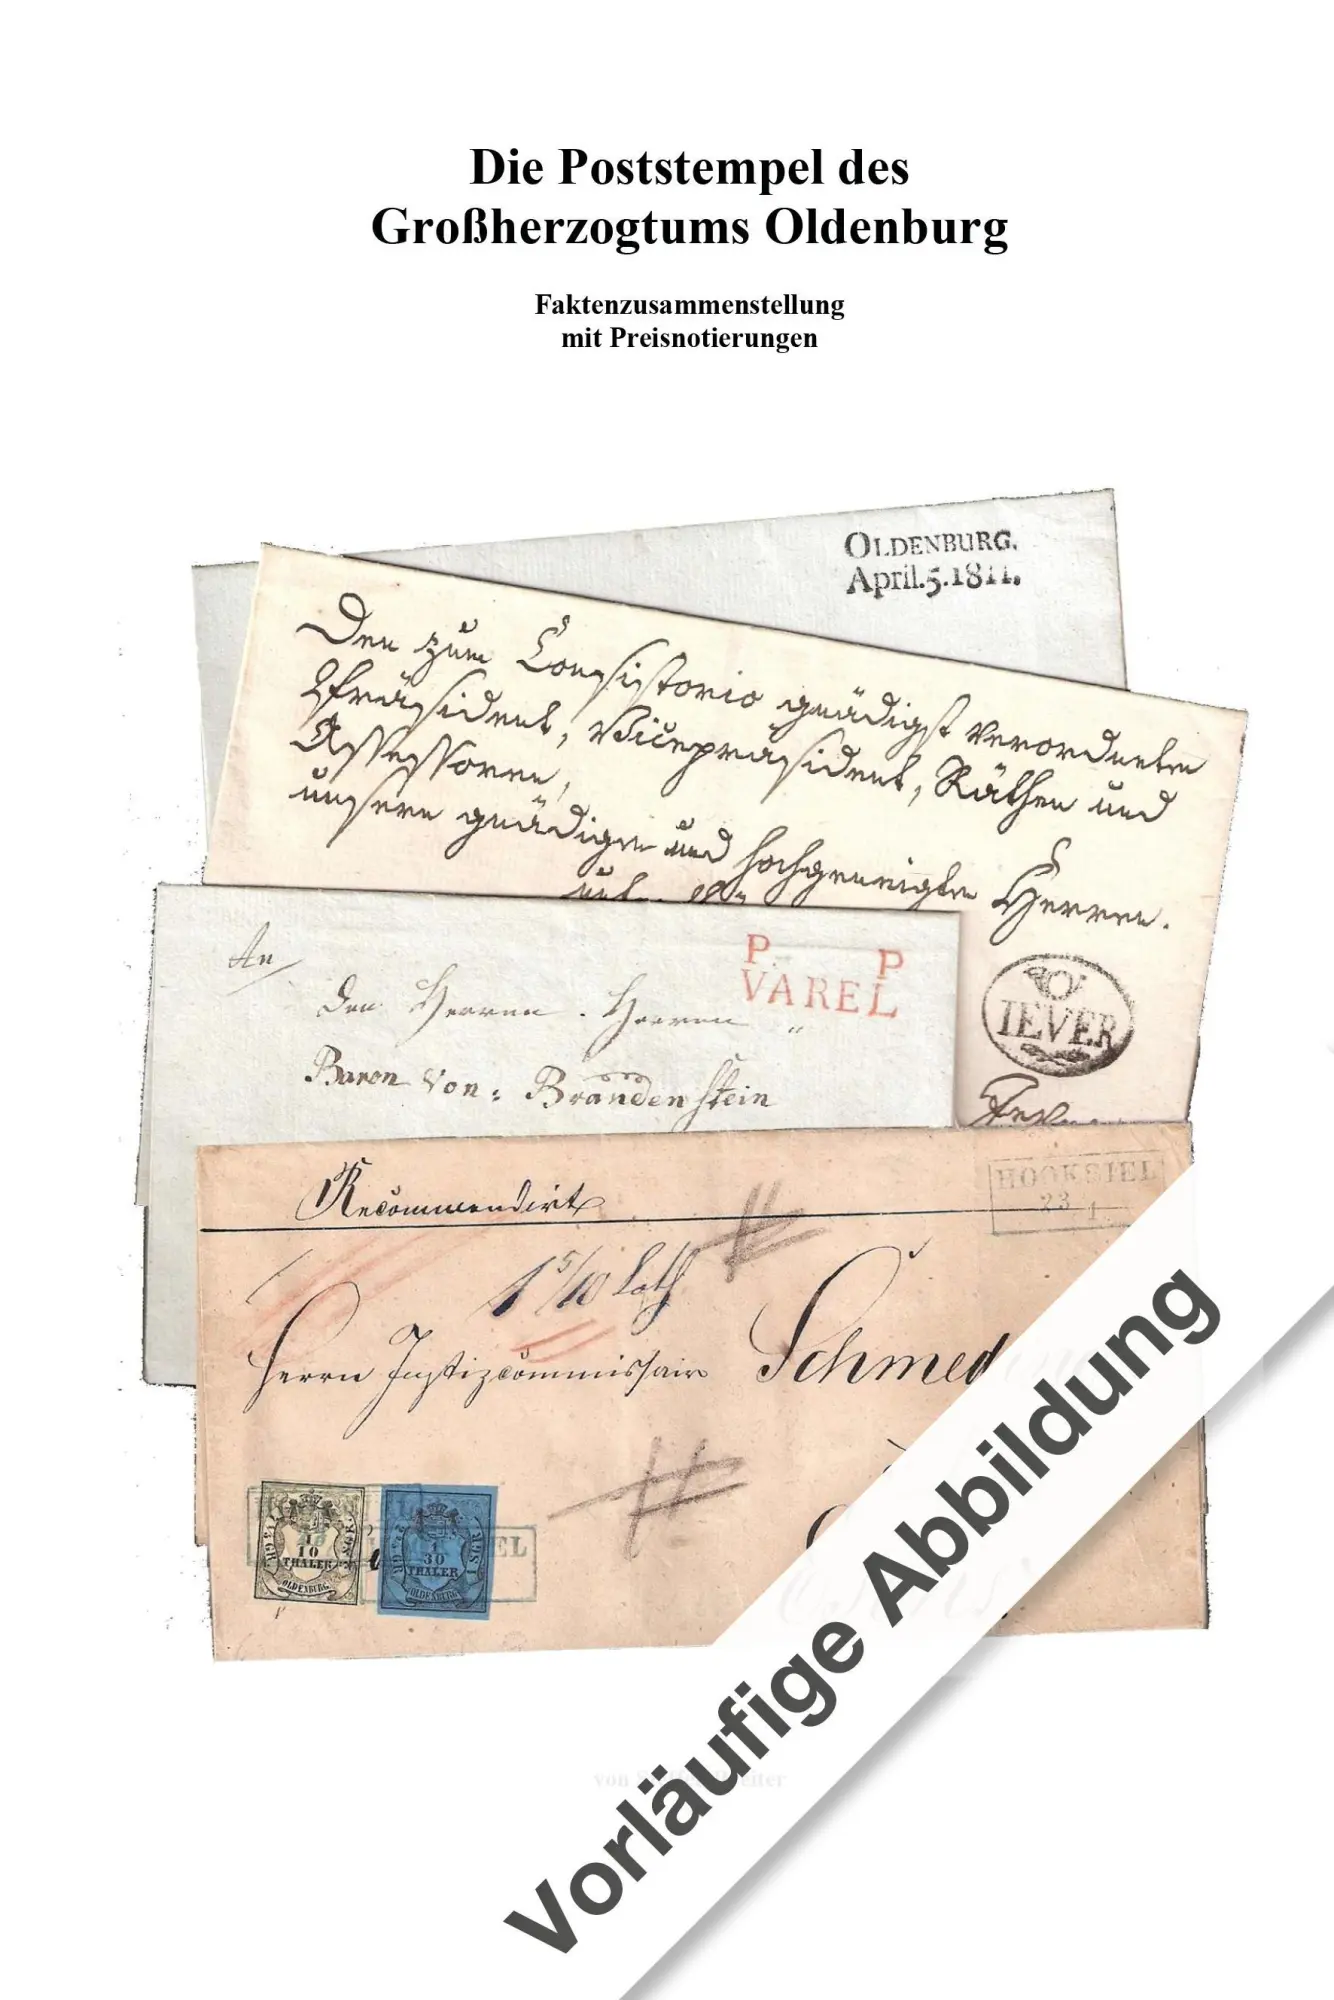 Die Poststempel des
Großherzogtums Oldenburg
Faktenzusammenstellung
mit Preisnotierungen
OLDENBURG.
April.5.1811.
Den zum Consistorio gnädigst verordneten
Präsident, Vicepräsident, Räthen und
Assessoren,
unsern gnädigen und hochgeneigten Herren.
IEVER
P. P
VAREL
An
den Herren Herren
Baron von Brandenstein
HOOKSIEL
23 1
Recommendirt
1 5/10 Loth
Herrn Justizcommissair
1/10
THALER
OLDENBURG.
1/30
THALER
OLDENBURG
von
Vorläufige Abbildung